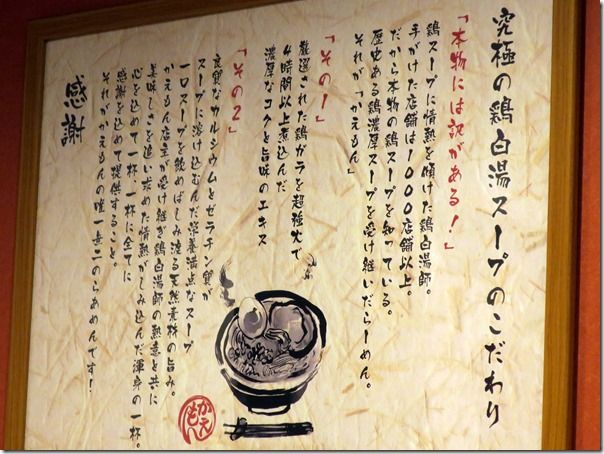 究極の鶏白湯スープのこだわり
「本物には訳がある!」
鶏スープに情熱を傾けた鶏白湯師。
手がけた店舗は1000店舗以上。
だから本物の鶏スープを知っている。
歴史ある鶏濃厚スープを受け継いだらーめん。
それが「かえもん」
「その1」
厳選された鶏ガラを超強火で
4時間以上煮込んだ
濃厚なコクと旨味のエキス
「その2」
良質なカルシウムとゼラチン質が
スープに溶け込むんだ栄養満点なスープ
一口スープを飲めばしみ渡る天然素材の旨み。
かえもん店主が受け継ぎ鶏白湯師の熱意と共に
美味しさを追い求めた情熱がしみ込んだ渾身の一杯。
心を込めて一杯、一杯に全てに
感謝を込めて提供すること。
それがかえもんの唯一無二のらあめんです!
感謝
かえもん